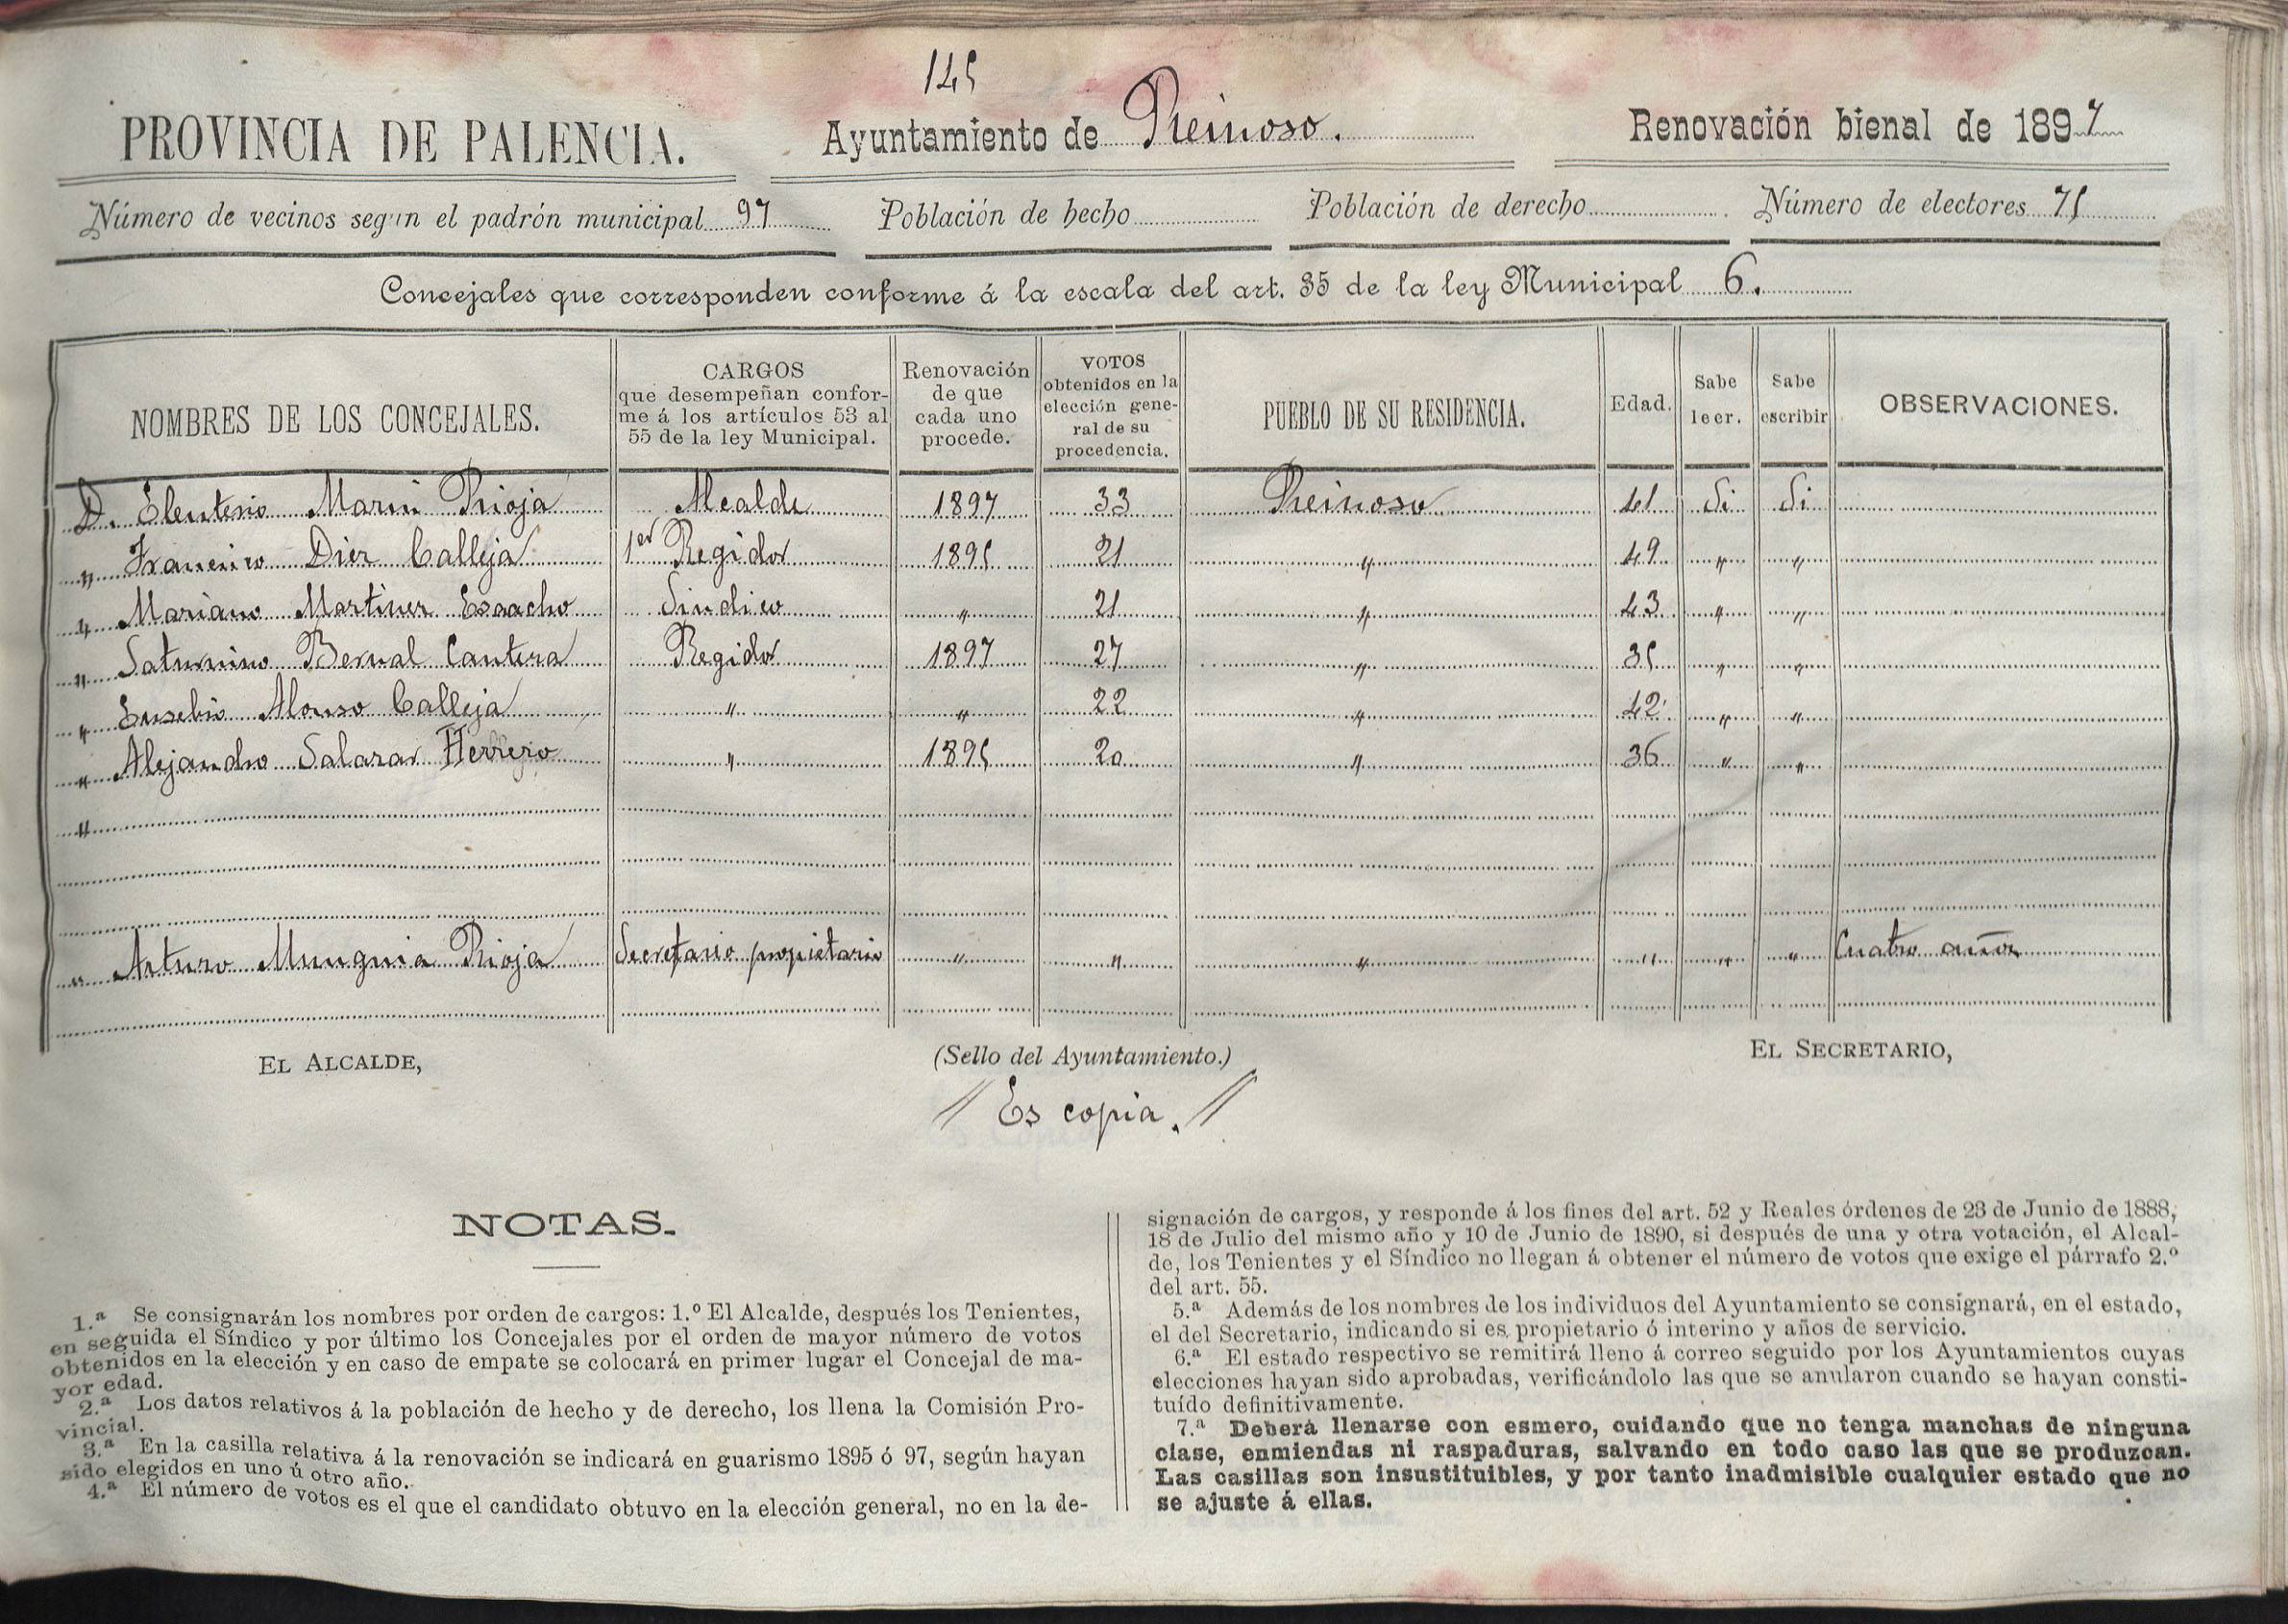 145
PROVINCIA DE PALENCIA. Ayuntamiento de Reinoso. Renovación bienal de 1897
Número de vecinos según el padrón municipal 97 Población de hecho Población de derecho Número de electores 75
Concejales que corresponden conforme á la escala del art. 35 de la ley Municipal 6.
NOMBRES DE LOS CONCEJALES.
CARGOS
que desempeñan confor-
me á los artículos 53 al
55 de la ley Municipal.
Renovación
de que
cada uno
procede.
VOTOS
obtenidos en la
elección gene-
ral de su
procedencia.
PUEBLO DE SU RESIDENCIA.
Edad.
Sabe
leer.
Sabe
escribir
OBSERVACIONES.
D. Eleuterio Marin Rioja Alcalde 1897 33 Reinoso 41 Si Si
" Francisco Diez Calleja 1er Regidor 1895 21 " 49 " "
" Mariano Martinez Sindico " 21 " 43 " "
" Saturnino Bernal Cantera Regidor 1897 27 " 35 " "
" Eusebio Alonso Calleja " " 22 " 42 " "
" Alejandro Salazar Herrero " 1895 20 " 36 " "
"
" Arturo Munguia Rioja Secretario propietario " " " " " " Cuatro años
EL ALCALDE, (Sello del Ayuntamiento.) EL SECRETARIO,
// Es copia. //
NOTAS.
1.ª Se consignarán los nombres por orden de cargos: 1.º El Alcalde, después los Tenientes,
en seguida el Síndico y por último los Concejales por el orden de mayor número de votos
obtenidos en la elección y en caso de empate se colocará en primer lugar el Concejal de ma-
yor edad.
2.ª Los datos relativos á la población de hecho y de derecho, los llena la Comisión Pro-
vincial.
3.ª En la casilla relativa á la renovación se indicará en guarismo 1895 ó 97, según hayan
sido elegidos en uno ú otro año.
4.ª El número de votos es el que el candidato obtuvo en la elección general, no en la de-
signación de cargos, y responde á los fines del art. 52 y Reales órdenes de 23 de Junio de 1888,
18 de Julio del mismo año y 10 de Junio de 1890, si después de una y otra votación, el Alcal-
de, los Tenientes y el Síndico no llegan á obtener el número de votos que exige el párrafo 2.º
del art. 55.
5.ª Además de los nombres de los individuos del Ayuntamiento se consignará, en el estado,
el del Secretario, indicando si es propietario ó interino y años de servicio.
6.ª El estado respectivo se remitirá lleno á correo seguido por los Ayuntamientos cuyas
elecciones hayan sido aprobadas, verificándolo las que se anularon cuando se hayan consti-
tuído definitivamente.
7.ª Deberá llenarse con esmero, cuidando que no tenga manchas de ninguna
clase, enmiendas ni raspaduras, salvando en todo caso las que se produzcan.
Las casillas son insustituibles, y por tanto inadmisible cualquier estado que no
se ajuste á ellas.